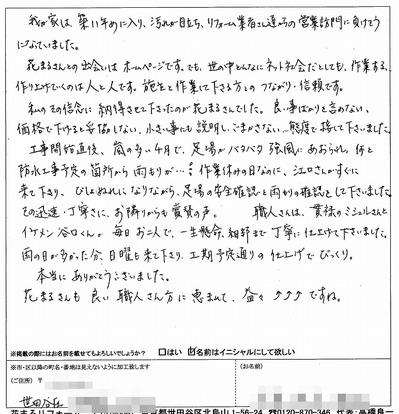 我が家は、築11年めに入り、汚れが目立ち、リフォーム業者さん達からの営業訪問に負けそう
になっていました。
花まるさんとの出会いは ホームページです。でも、世の中どんなにネット社会だとしても、作業する、
作り上げていくのは人と人です。施主と作業して下さる方とのつながり・信頼です。
私のその信念に 納得させて下さったのが花まるさんでした。良い事ばかりを言わない、
価格で下げると妥協しない、小さい事にも説明し、ごまかさない…態度で接して下さいました。
工事開始直後、嵐の多い4月で、足場がバタバタ 強風に あおられ、何と
防水工事予定の箇所から 雨もりが…! 作業休みの日なのに、江口さんがすぐに
来て下さり、びしょぬれになりながら、足場の安全確認と雨もりの確認をして下さいました。
その迅速・丁寧さに、お隣りからも賞賛の声。 職人さんは、貫禄のミシュルさんと
イケメン谷口くんが 毎日お二人で、一生懸命、細部まで丁寧に仕上げて下さいました。
雨の日が多かった分、日曜も来て下さり、工期予定通りの仕上げでびっくり。
本当にありがとうございました。
花まるさんも 良い 職人さん方に 恵まれて、益々 ↗↗↗ ですね。
※掲載の際にはお名前を載せてもよろしいでしょうか? □はい ☑名前はイニシャルにして欲しい
※市・区以降の町名・番地は見えないように加工致します
(ご住所) 〒
(お名前)
世田谷区
花まるリフォーム 東京都世田谷区北烏山1-56-24 ☎0120-870-346 代表:高橋良一